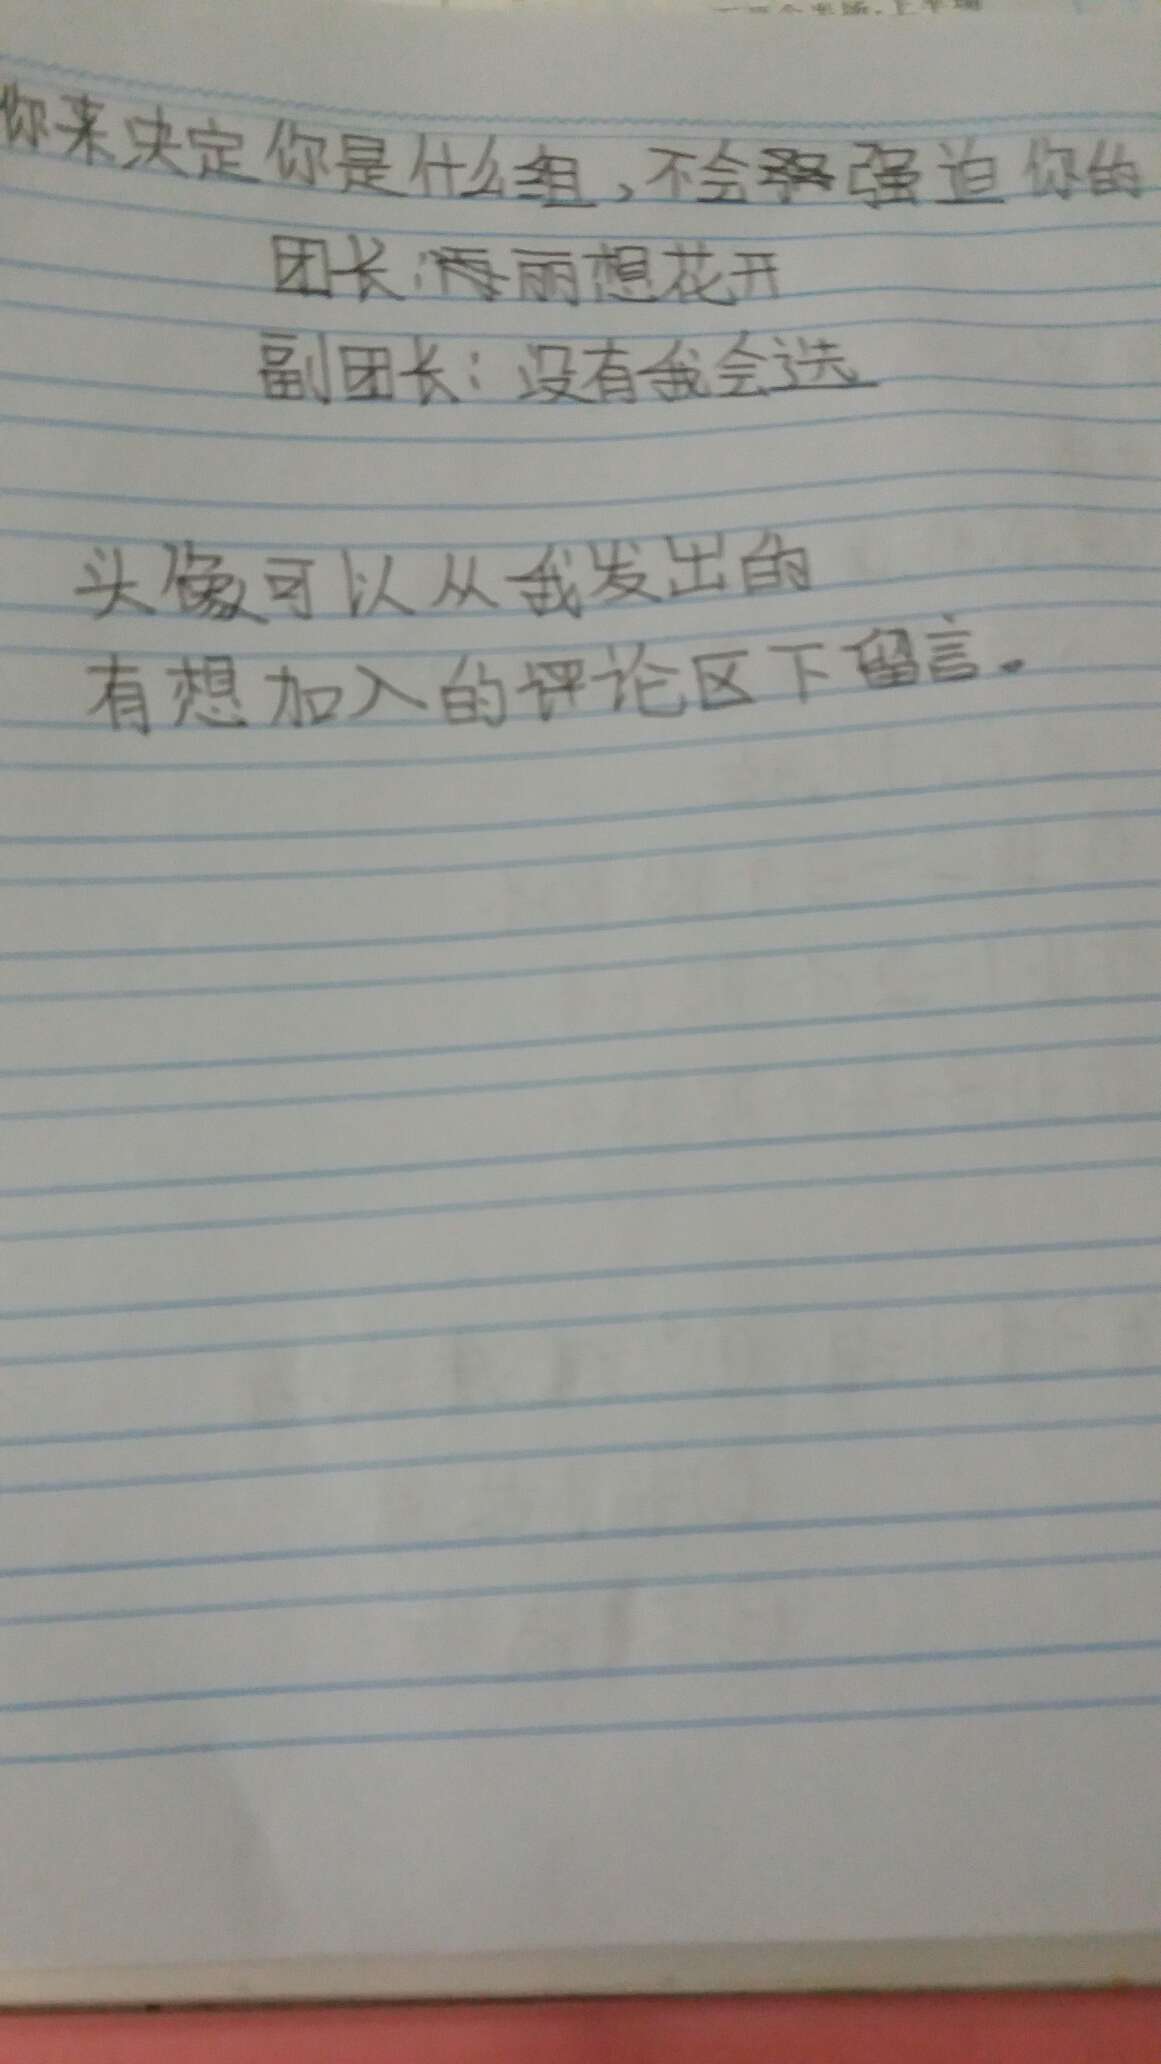 你来决定你是什么组，不会强迫你的
团长：海丽想花开
副团长：没有我会选
头像可以从我发出的
有想加入的评论区下留言。